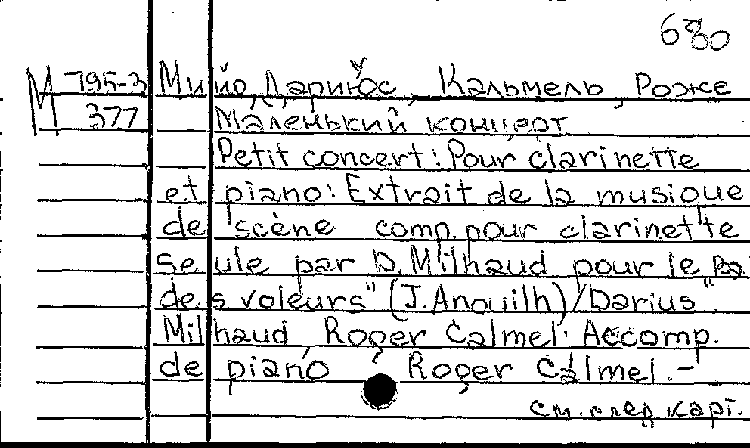 680
М 795-3 Мийо, Дариюс, Кальмель, Роже
377 Маленький концерт
Petit concert: Pour clarinette
et piano: Extrait de la musique
de scène comp. pour clarinette
seule par D. Milhaud pour le "Bal
des voleurs" (J. Anouilh) / Darius
Milhaud, Roger Calmel; Accomp.
de piano Roger Calmel. -
см. след. карт.